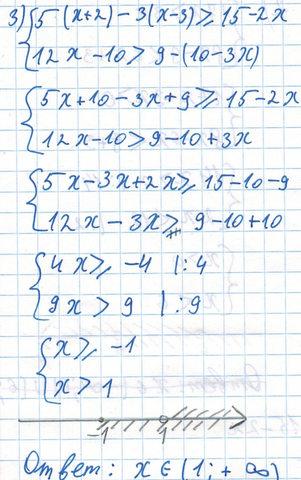 3) { 5(x+2) - 3(x-3) ⩾ 15-2x
{ 12x-10 > 9-(10-3x)
{ 5x+10-3x+9 ⩾ 15-2x
{ 12x-10 > 9-10+3x
{ 5x-3x+2x ⩾ 15-10-9
{ 12x-3x > 9-10+10
{ 4x ⩾ -4 |:4
{ 9x > 9 |:9
{ x ⩾ -1
{ x > 1
-1 1
Ответ: x ∈ (1; +∞)